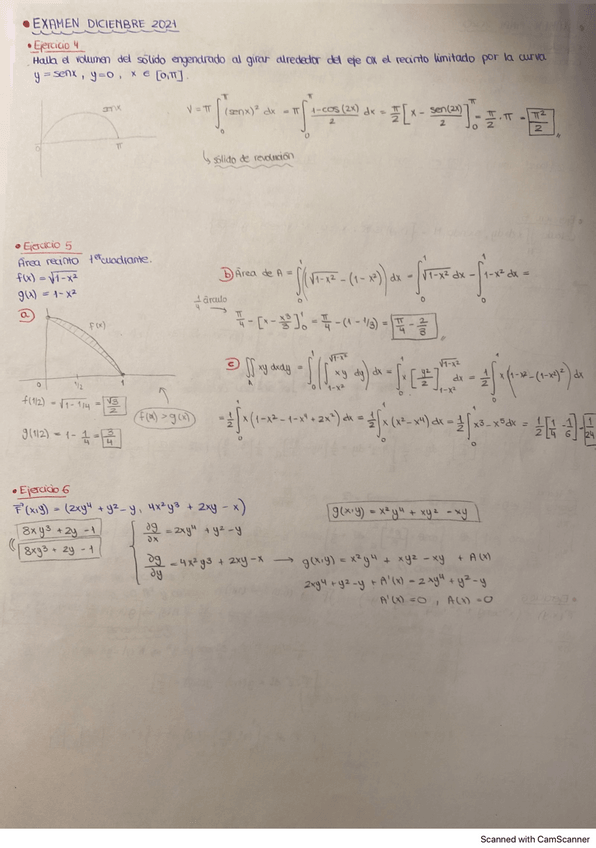 • EXAMEN DICIEMBRE 2021
• Ejercicio 4
Halla el volumen del sólido engendrado al girar alrededor del eje OX el recinto limitado por la curva
y = senx, y=0, x ∈ [0,π].
senx
0 π
V = π ∫₀^π (senx)² dx = π ∫₀^π (1-cos(2x))/2 dx = π/2 [x - sen(2x)/2]₀^π = π/2 · π = π²/2
↳ sólido de revolución
• Ejercicio 5
Área recinto 1er cuadrante.
f(x) = √(1-x²)
g(x) = 1-x²
a)
F(x)
0 1/2 1
f(1/2) = √(1-1/4) = √3/2
g(1/2) = 1 - 1/4 = 3/4
f(x) > g(x)
b) Área de A = ∫₀¹ (√(1-x²) - (1-x²)) dx = ∫₀¹ √(1-x²) dx - ∫₀¹ 1-x² dx =
1/4 círculo
π/4 - [x - x³/3]₀¹ = π/4 - (1 - 1/3) = π/4 - 2/3
c) ∬_A xy dxdy = ∫₀¹ (∫_{1-x²}^{√(1-x²)} xy dy) dx = ∫₀¹ x [y²/2]_{1-x²}^{√(1-x²)} dx = 1/2 ∫₀¹ x (1-x² - (1-x²)²) dx
= 1/2 ∫₀¹ x (1-x² - 1-x⁴ + 2x²) dx = 1/2 ∫₀¹ x (x² - x⁴) dx = 1/2 ∫₀¹ x³ - x⁵ dx = 1/2 [1/4 - 1/6] = 1/24
• Ejercicio 6
F(x,y) = (2xy⁴ + y² - y, 4x²y³ + 2xy - x)
g(x,y) = x²y⁴ + xy² - xy
8xy³ + 2y - 1
8xy³ + 2y - 1
∂g/∂x = 2xy⁴ + y² - y
∂g/∂y = 4x²y³ + 2xy - x → g(x,y) = x²y⁴ + xy² - xy + A(x)
2xy⁴ + y² - y + A'(x) = 2xy⁴ + y² - y
A'(x) = 0, A(x) = 0
Scanned with CamScanner